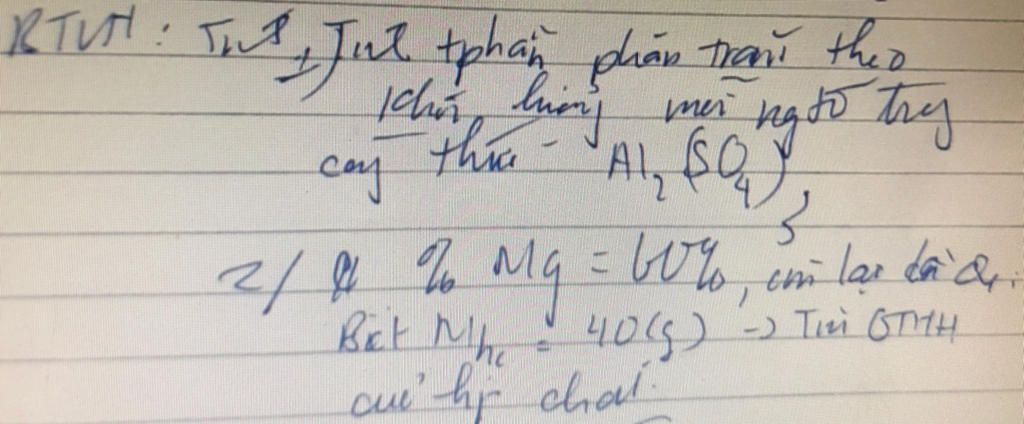 BTVN: 1, Tính tphần phần trăm theo
khối lượng mỗi ngtố trg
công thức Al2(SO4)3
2/ % Mg = 60%, còn lại là O.
Biết Mhc = 40(g) -> Tìm CTHH
của hợp chất.